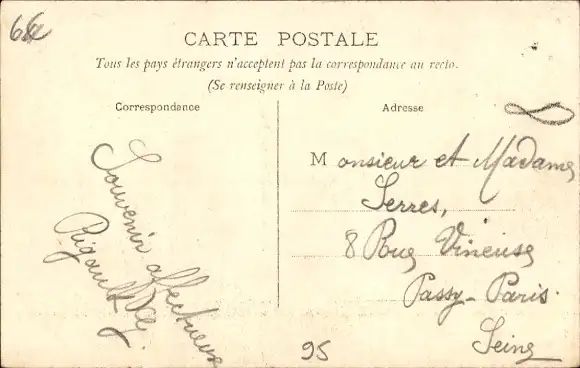 CARTE POSTALE
Tous les pays étrangers n'acceptent pas la correspondance au recto.
(Se renseigner à la Poste)
Correspondance
Souvenir affectueux
Rigault
Adresse
Monsieur et Madame
Serres,
8 Rue Vineuse
Passy-Paris.
Seine
95